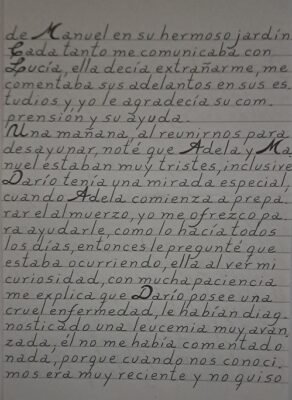 de Manuel en su hermoso jardín
Cada tanto me comunicaba con
Lucía, ella decía extrañarme, me
comentaba sus adelantos en sus es
tudios y yo le agradecía su com
prensión y su ayuda.
Una mañana, al reunirnos para
desayunar, noté que Adela y Ma
nuel estaban muy tristes, inclusive
Darío tenía una mirada especial,
cuando Adela comienza a prepa
rar el almuerzo, yo me ofrezco pa
ra ayudarle, como lo hacía todos
los días, entonces le pregunté que
estaba ocurriendo, ella al ver mi
curiosidad, con mucha paciencia
me explica que Darío, posee una
cruel enfermedad, le habían diag
nosticado una leucemia muy avan
zada, él no me había comentado
nada, porque cuando nos conoci
mos era muy reciente y no quiso